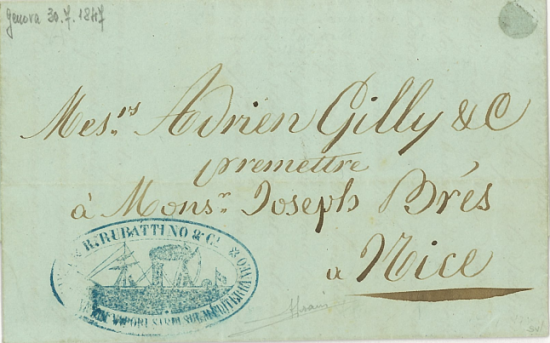 Genova 30.7.1847
Mes.rs Adrien Gilly & C
premettre
à Mons.r Joseph Brés
a Nice
R. RUBATTINO & C.
VAPORI SARDI SUL MEDITERRANEO